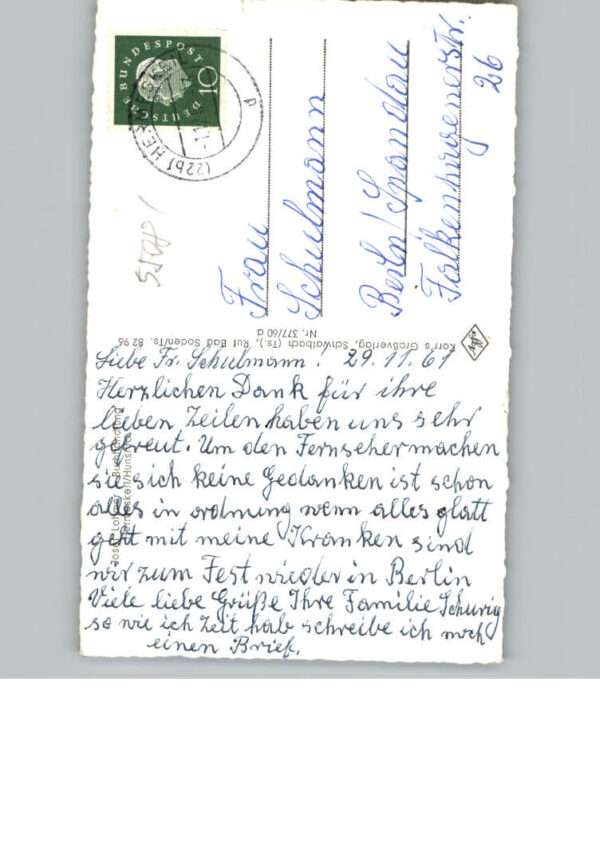 Liebe Fr. Schulmann! 29.11.61
Herzlichen Dank für ihre
lieben Zeilen haben uns sehr
gefreut. Um den Fernseher machen
sie sich keine Gedanken ist schon
alles in ordnung wenn alles glatt
geht mit meine Kranken sind
wir zum Fest wieder in Berlin
Viele liebe Grüße Ihre Familie Schurig
so wie ich Zeit hab schreibe ich noch
einen Brief.
Frau
Schulmann
Berlin/Spandau
Falkenhagenerstr.
26
DEUTSCHE BUNDESPOST
10
(22b) HER
p
Korr's Großverlag, Schwalbach (Ts.), Ruf Bad Soden/Ts. 82 96
Nr. 377/60 d
Agfa
Josef Buchhandlung
Hermeskeil/Hunsrück